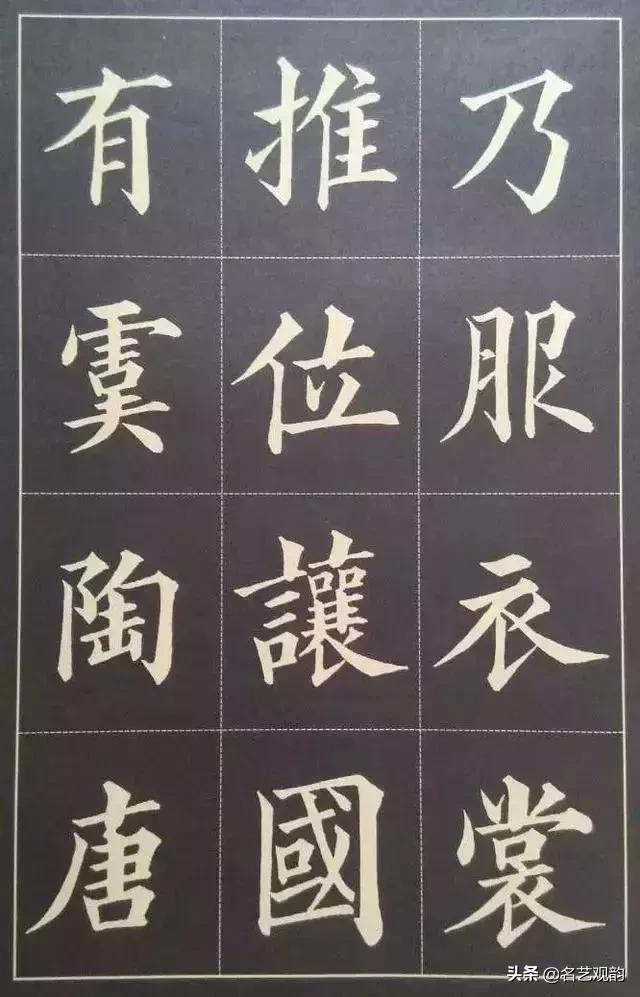 乃服衣裳
推位讓國
有虞陶唐
头条 @名艺观韵